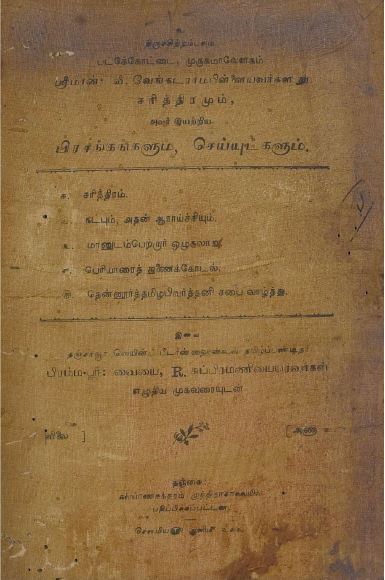 உ
திருச்சிற்றம்பலம்
படக்கோட்டை, முருகமாவேளகம்
ஸ்ரீமான்: வீ. வேங்கடராமபிள்ளையவர்களது
சரித்திரமும்,
அவர் இயற்றிய
பிரசங்கங்களும், செய்யுட்களும்.
க. சரித்திரம்.
உ. கடபும், அதன் ஆராய்ச்சியும்.
மானுடம்பெற்றார் ஒழுகலாறு
ச. பெரியாரைத் துணைக்கோடல்.
ரு. தென்னூர்த்தமிழபிவர்த்தனி சபை வாழ்த்து.
இவை
தஞ்சாவூர் தமிழ்ப்பண்டிதர்
பிரம்மஸ்ரீ: வையை, R. சுப்பிரமணியையரவர்கள்
எழுதிய முகவுரையுடன்
விலை ] [அணா
தஞ்சை
கல்யாணசுந்தரம் முத்திராசாலையில்
பதிப்பிக்கப்பட்டன.
சௌமிய